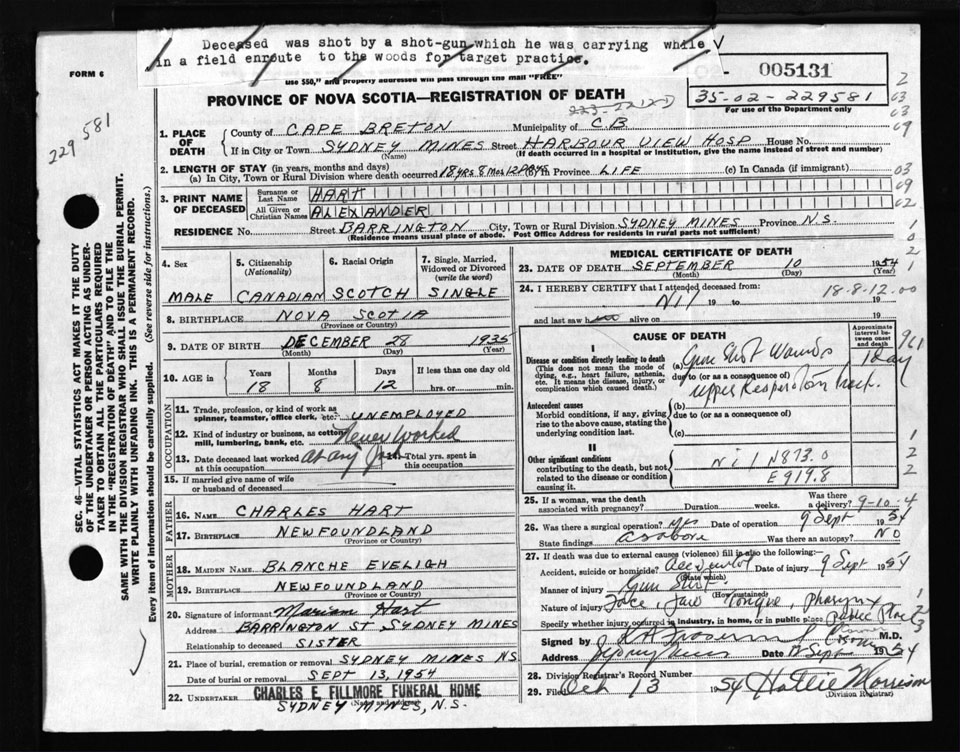 Deceased was shot by a shot-gun which he was carrying while
in a field enroute to the woods for target practice.
FORM 6
use $50," and properly addressed will pass through the mail "FREE"
005131
35-02-229581
For use of the Department only
PROVINCE OF NOVA SCOTIA—REGISTRATION OF DEATH
229581
1. PLACE OF DEATH
County of CAPE BRETON Municipality of C B
If in City or Town SYDNEY MINES Street HARBOUR VIEW HOSP House No.
(Name) (If death occurred in a hospital or institution, give the name instead of street and number)
2. LENGTH OF STAY (in years, months and days)
(a) In City, Town or Rural Division where death occurred 18 YRS 8 MOS 12 DAYS (b) in Province LIFE (c) In Canada (if immigrant)
3. PRINT NAME OF DECEASED
Surname or Last Name HART
All Given or Christian Names ALEXANDER
RESIDENCE No. Street BARRINGTON City, Town or Rural Division SYDNEY MINES Province N.S.
(Residence means usual place of abode. Post Office Address for residents in rural parts not sufficient)
4. Sex MALE
5. Citizenship (Nationality) CANADIAN
6. Racial Origin SCOTCH
7. Single, Married, Widowed or Divorced (write the word) SINGLE
8. BIRTHPLACE NOVA SCOTIA
(Province or Country)
9. DATE OF BIRTH DECEMBER 28 1935
(Month) (Day) (Year)
10. AGE in Years Months Days If less than one day
18 8 12 hrs. or min.
OCCUPATION
11. Trade, profession, or kind of work as spinner, teamster, office clerk, etc. UNEMPLOYED
12. Kind of industry or business, as cotton mill, lumbering, bank, etc. Never Worked
13. Date deceased last worked at this occupation at any job 14. Total yrs. spent in this occupation
15. If married give name of wife or husband of deceased
FATHER
16. NAME CHARLES HART
17. BIRTHPLACE NEWFOUNDLAND
(Province or Country)
MOTHER
18. MAIDEN NAME BLANCHE EVELIGH
19. BIRTHPLACE NEWFOUNDLAND
(Province or Country)
20. Signature of informant Marion Hart
Address BARRINGTON ST, SYDNEY MINES
Relationship to deceased SISTER
21. Place of burial, cremation or removal SYDNEY MINES NS
Date of burial or removal SEPT 13, 1954
22. UNDERTAKER CHARLES E. FILLMORE FUNERAL HOME
(Name and address)
SYDNEY MINES, N.S.
MEDICAL CERTIFICATE OF DEATH
23. DATE OF DEATH SEPTEMBER 10 1954
(Month) (Day) (Year)
24. I HEREBY CERTIFY that I attended deceased from:
Nil 19 to 19
18-8-12.00
and last saw h alive on 19
CAUSE OF DEATH
Approximate interval between onset and death
I
Disease or condition directly leading to death
(This does not mean the mode of dying, e.g., heart failure, asthenia, etc. It means the disease, injury, or complication which caused death.)
(a) Gun Shot Wounds 1 day
due to (or as a consequence of)
upper Respiratory tract.
Antecedent causes
Morbid conditions, if any, giving rise to the above cause, stating the underlying condition last.
(b)
due to (or as a consequence of)
(c)
II
Other significant conditions
contributing to the death, but not related to the disease or condition causing it.
Nil N873.0
E919.8
25. If a woman, was the death associated with pregnancy? Duration weeks. Was there a delivery?
9-10-4
26. Was there a surgical operation? yes Date of operation 9 Sept 1954
State findings as above Was there an autopsy? NO
27. If death was due to external causes (violence) fill in also the following:
Accident, suicide or homicide? Accident Date of injury 9 Sept 1954
(State which)
Manner of injury Gun Shot
(How sustained)
Nature of injury Face, Jaw Tongue, Pharynx
Specify whether injury occurred in industry, in home, or in public place Public Place
Signed by M.D.
Address Sydney Mines Date 12 Sept 1954
28. Division Registrar's Record Number
29. Filed Oct 13 1954 Hattie Morrison
(Division Registrar)
SEC. 46—VITAL STATISTICS ACT MAKES IT THE DUTY
OF THE UNDERTAKER OR PERSON ACTING AS UNDER-
TAKER TO OBTAIN ALL THE PARTICULARS REQUIRED
IN THE "REGISTRATION OF DEATH" AND TO FILE THE
SAME WITH THE DIVISION REGISTRAR WHO SHALL ISSUE THE BURIAL PERMIT.
WRITE PLAINLY WITH UNFADING INK. THIS IS A PERMANENT RECORD.
Every item of information should be carefully supplied. (See reverse side for instructions.)